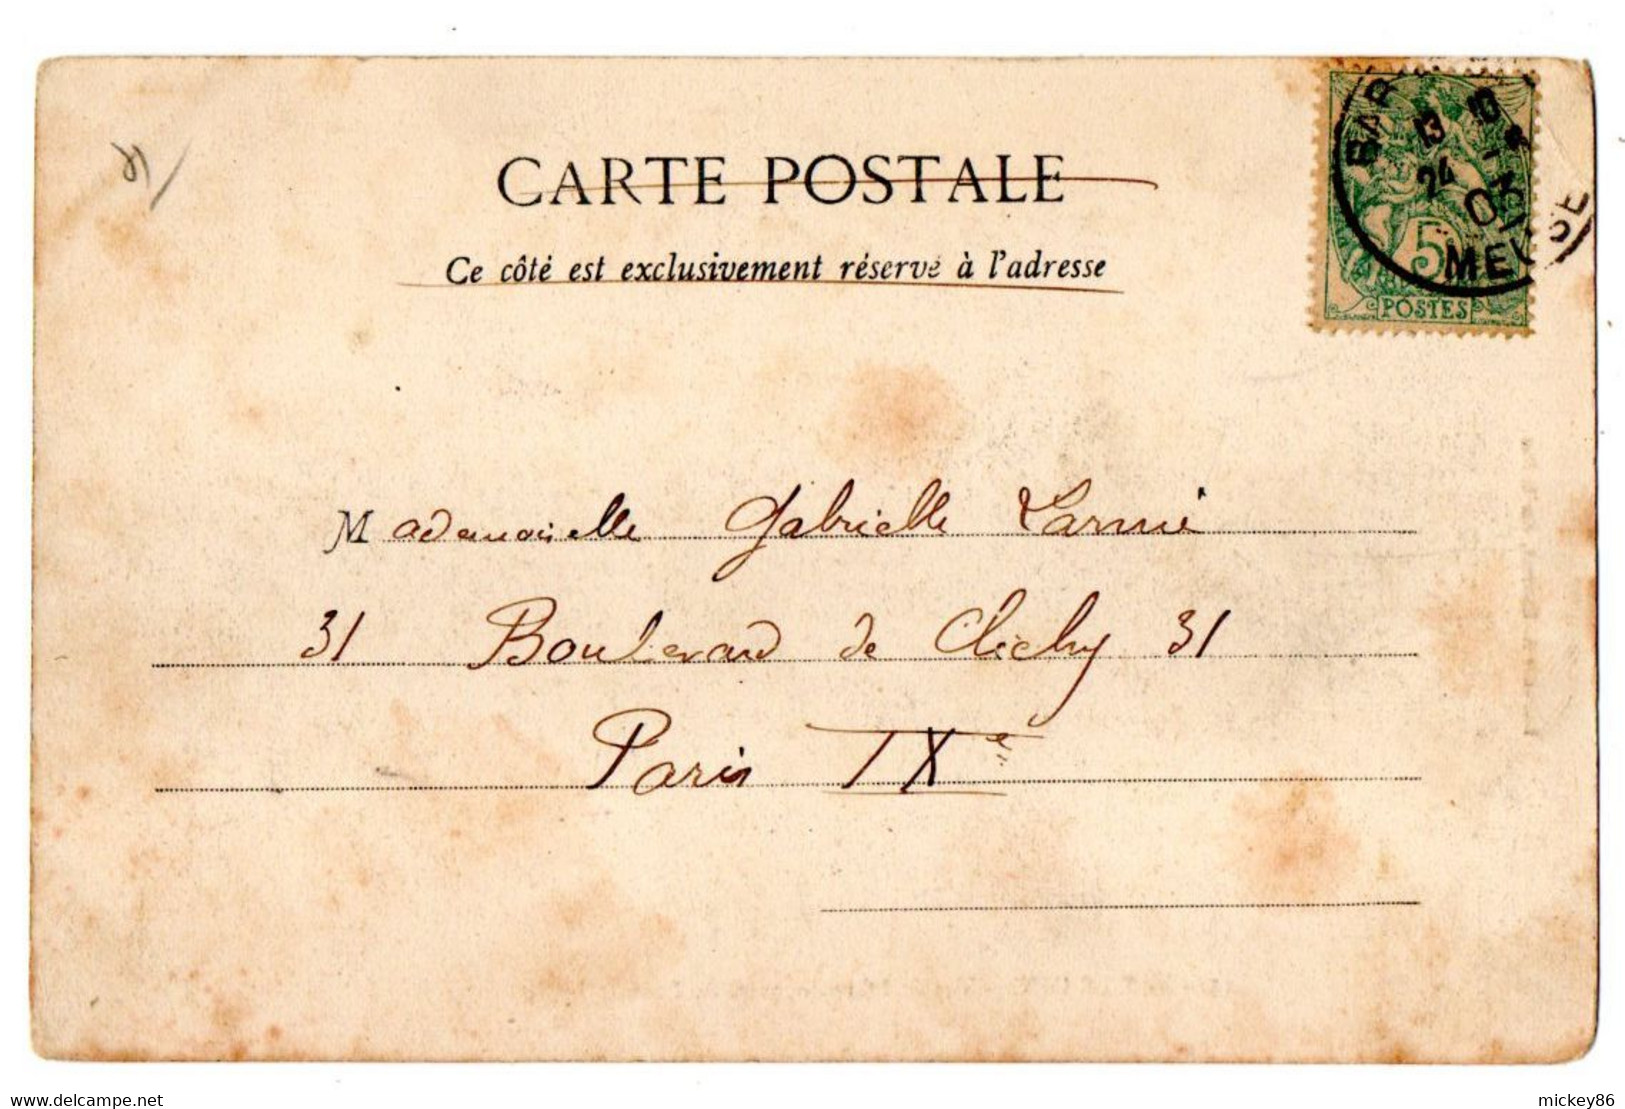 CARTE POSTALE
Ce côté est exclusivement réservé à l'adresse
BAR
13 10
24
03
MEUSE
5
POSTES
Mademoiselle Gabrielle
31 Boulevard de Clichy 31
Paris IXe
www.delcampe.net
mickey86